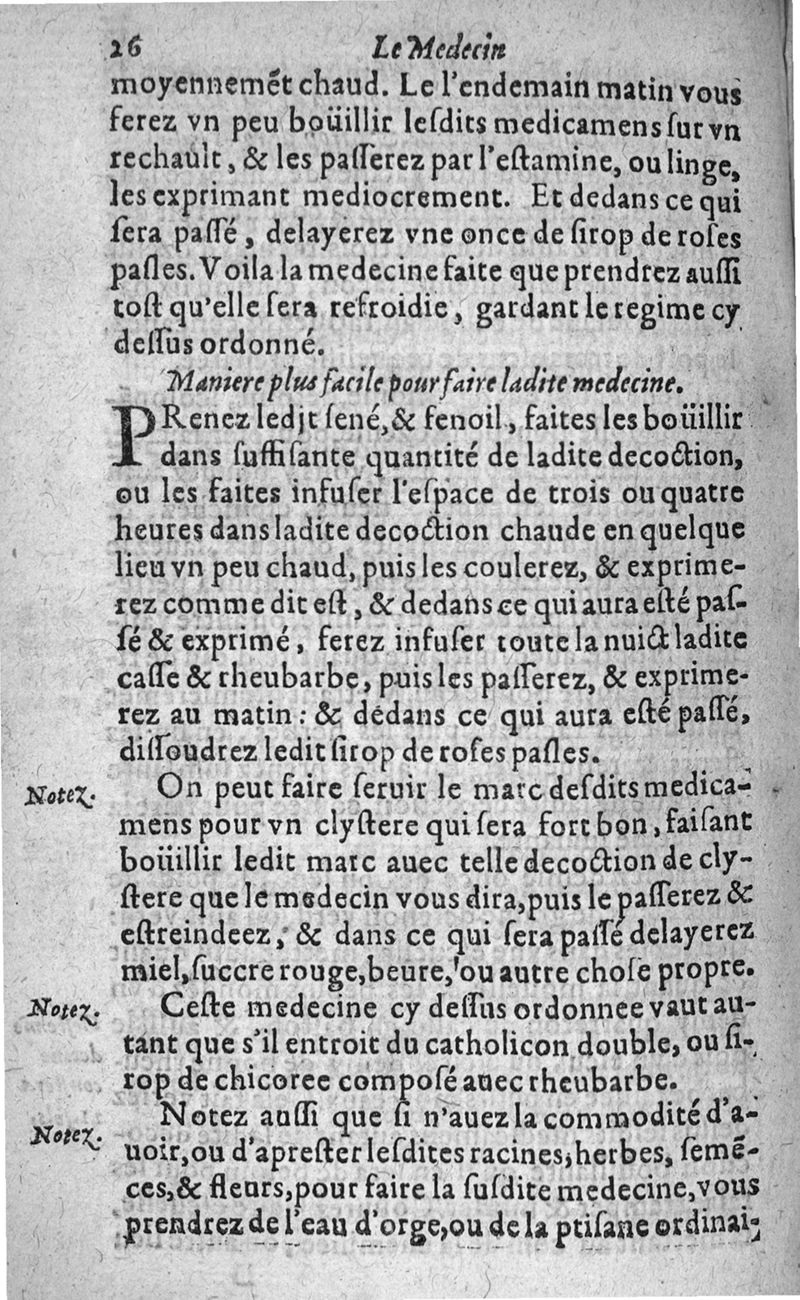 26 Le Medecin
moyennemẽt chaud. Le l'endemain matin vous
ferez vn peu boüillir leſdits medicamens ſur vn
rechault, & les paſſerez par l'eſtamine, ou linge,
les exprimant mediocrement. Et dedans ce qui
ſera paſſé, delayerez vne once de ſirop de roſes
paſles. Voila la medecine faite que prendrez auſſi
toſt qu'elle ſera refroidie, gardant le regime cy
deſſus ordonné.
Maniere plus facile pour faire ladite medecine.
PRenez ledit ſené, & fenoil, faites les boüillir
dans ſuffiſante quantité de ladite decoction,
ou les faites infuſer l'eſpace de trois ou quatre
heures dans ladite decoction chaude en quelque
lieu vn peu chaud, puis les coulerez, & exprime-
rez comme dit eſt, & dedans ce qui aura eſté paſ-
ſé & exprimé, ferez infuſer toute la nuict ladite
caſſe & rheubarbe, puis les paſſerez, & exprime-
rez au matin: & dedans ce qui aura eſté paſſé,
diſſoudrez ledit ſirop de roſes paſles.
Notez. On peut faire ſeruir le marc deſdits medica-
mens pour vn clyſtere qui ſera fort bon, faiſant
boüillir ledit marc auec telle decoction de cly-
ſtere que le medecin vous dira, puis le paſſerez &
eſtreindeez, & dans ce qui ſera paſſé delayerez
miel, ſuccre rouge, beure, ou autre choſe propre.
Notez. Ceſte medecine cy deſſus ordonnee vaut au-
tant que s'il entroit du catholicon double, ou ſi-
rop de chicoree compoſé auec rheubarbe.
Notez. Notez auſſi que ſi n'auez la commodité d'a-
uoir, ou d'apreſter leſdites racines, herbes, ſemẽ-
ces, & fleurs, pour faire la ſuſdite medecine, vous
prendrez de l'eau d'orge, ou de la ptiſane ordinai-